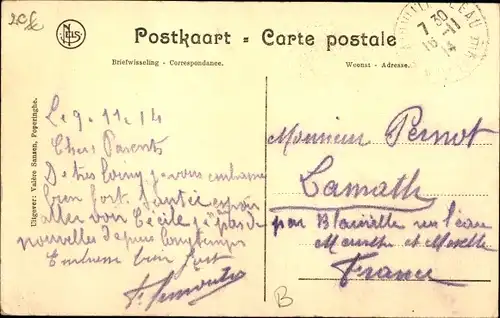 NELS
Postkaart - Carte postale
Briefwisseling - Correspondance.
Woonst - Adresse.
Uitgever: Valère Sansen, Poperinghe.
7 30
16 -11
14
Le 9. 11. 14
Chers Parents
De très loing je vous embrasse
bien fort. Santé
aller voir Cécile j'ai pas de
nouvelles depuis longtemps
Embrasse bien fort
Monsieur Pernot
Lamath
par Blainville sur l'eau
Meurthe et Moselle
France
B